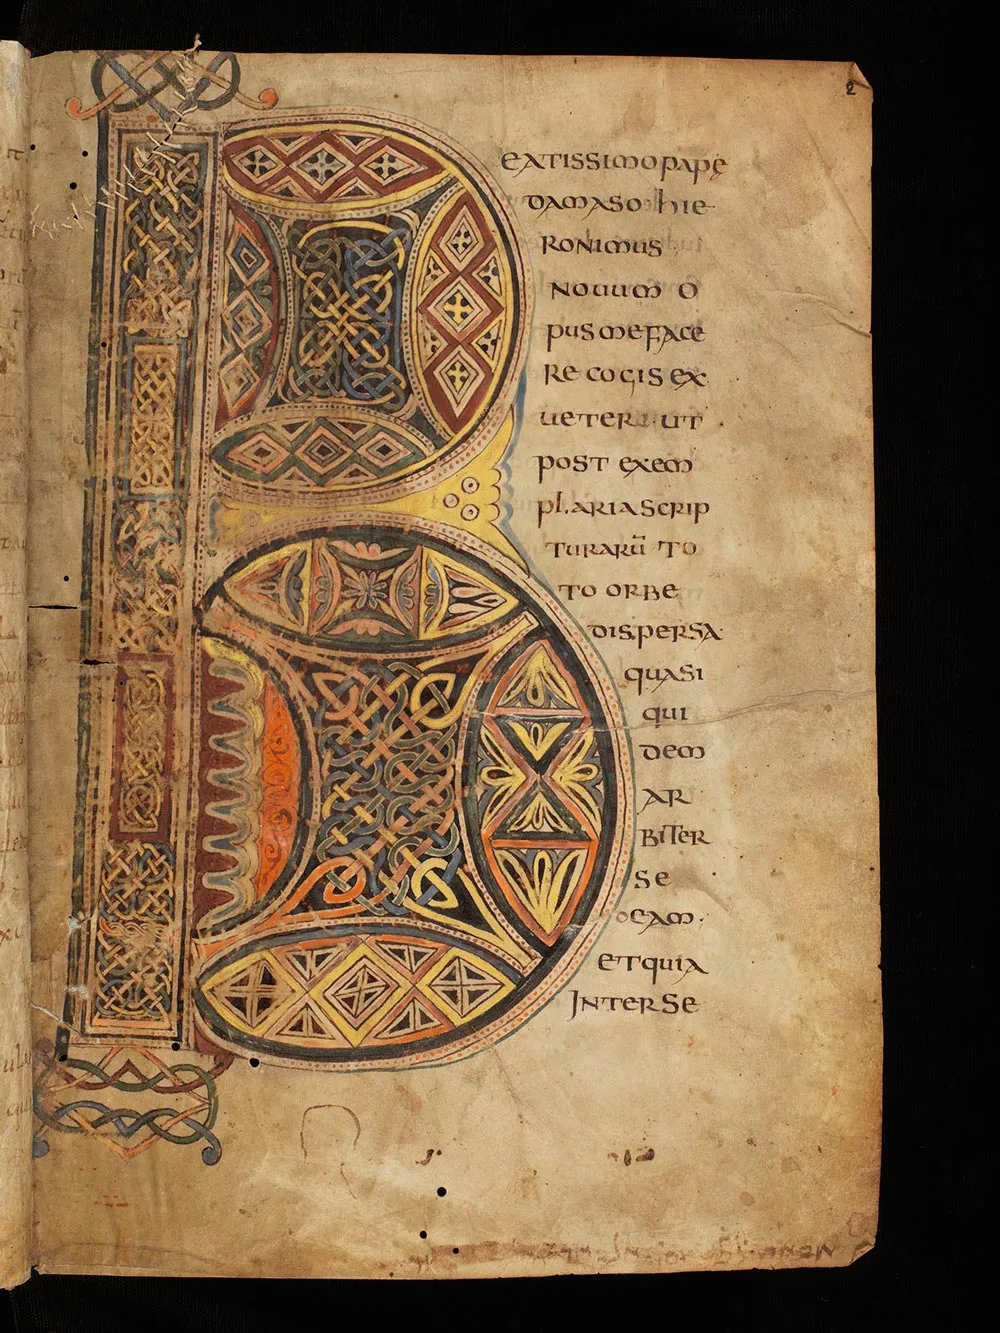 2
B
EATISSIMO PAPE
DAMASO HIE
RONIMUS
NOUUM O
PUS ME FACE
RE COGIS EX
UETERI UT
POST EXEM
PLARIA SCRIP
TURARŪ TO
TO ORBE
DISPERSA
QUASI
QUI
DEM
AR
BITER
SE
DEAM·
ET QUIA
INTER SE